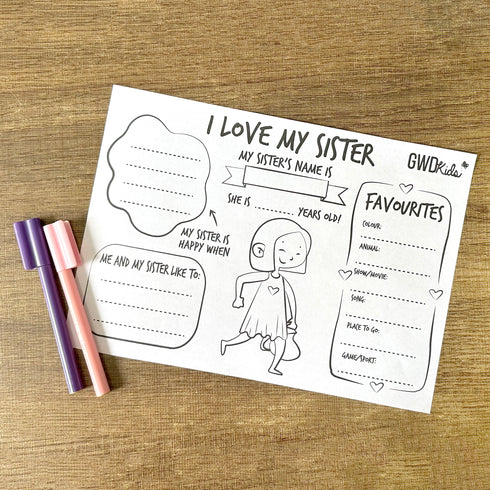 I LOVE MY SISTER
GWD Kids
MY SISTER'S NAME IS
SHE IS ........ YEARS OLD!
MY SISTER IS
HAPPY WHEN
ME AND MY SISTER LIKE TO:
FAVOURITES
COLOUR:
ANIMAL:
SHOW/MOVIE:
SONG:
PLACE TO GO:
GAME/SPORT: